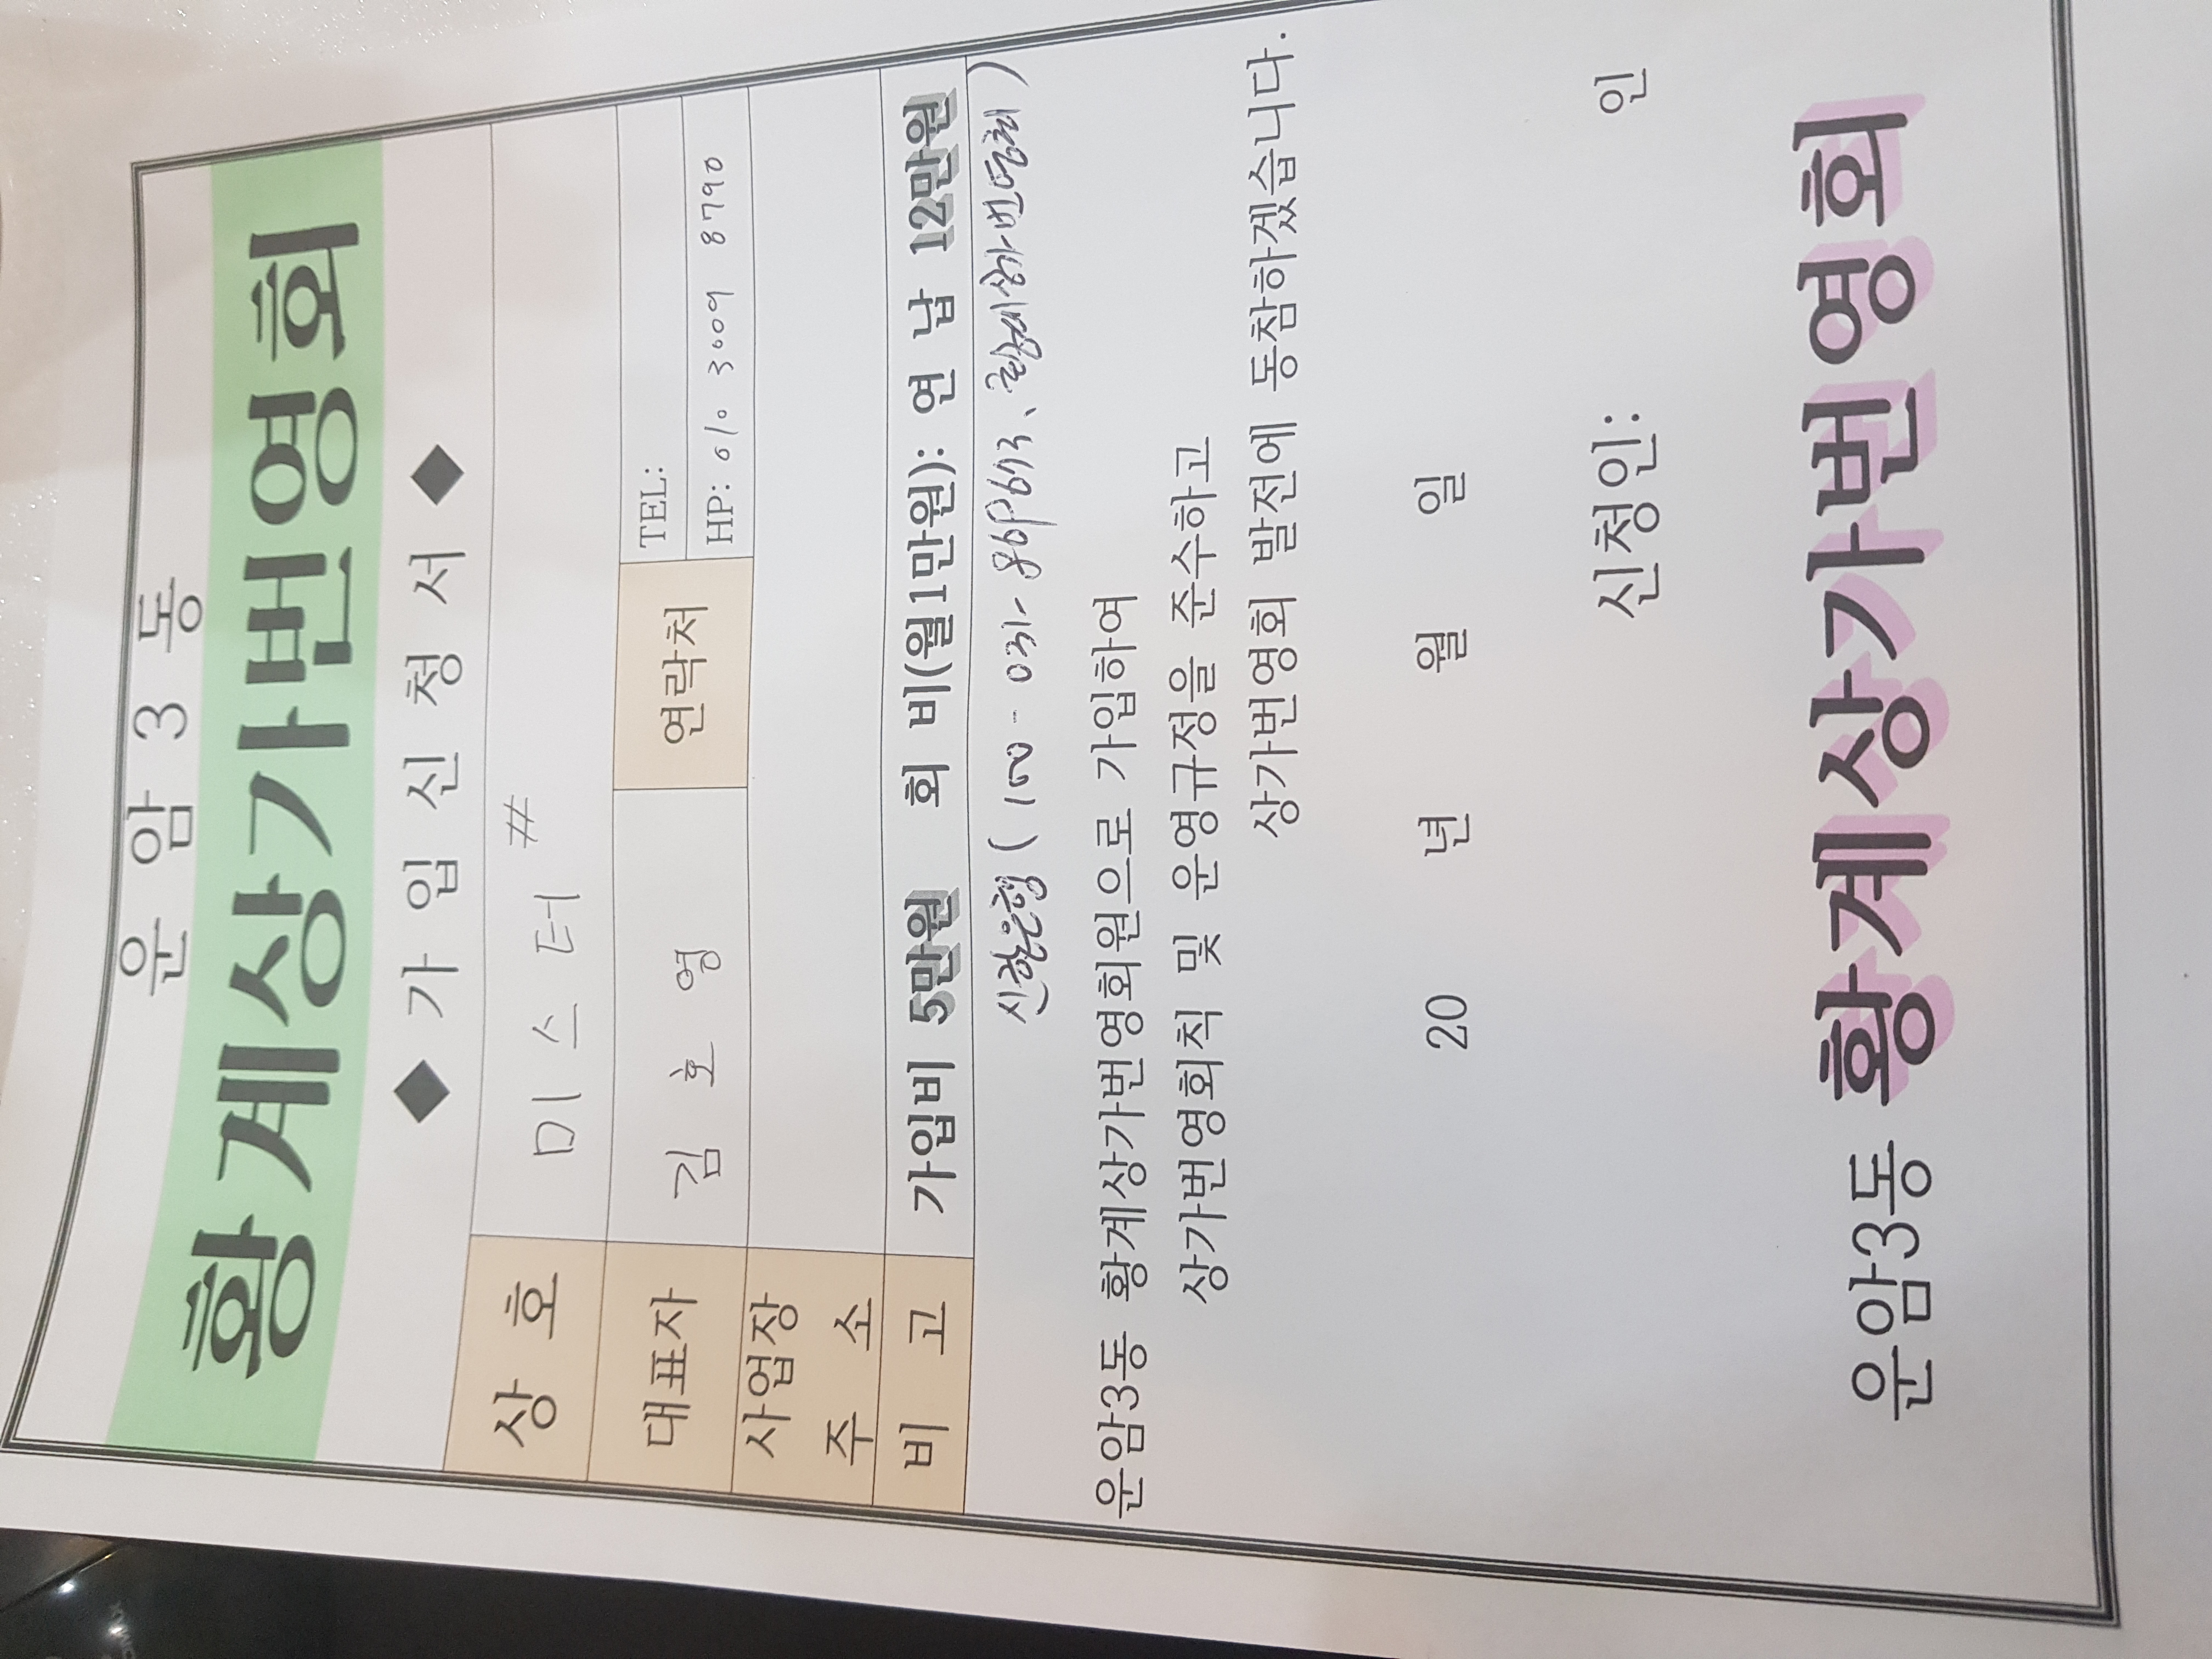 운 암 3 동
황계상가번영회
◆ 가 입 신 청 서 ◆
상 호 미 스 터 #
대표자 김 호 영 연락처 TEL:
HP: 010 3009 8790
사업장
주 소
비 고 가입비 5만원 회 비(월1만원): 연 납 12만원
신한은행 ( 100-031- 황계상가번영회 )
운암3동 황계상가번영회원으로 가입하여
상가번영회칙 및 운영규정을 준수하고
상가번영회 발전에 동참하겠습니다.
20 년 월 일
신청인: 인
운암3동 황계상가번영회